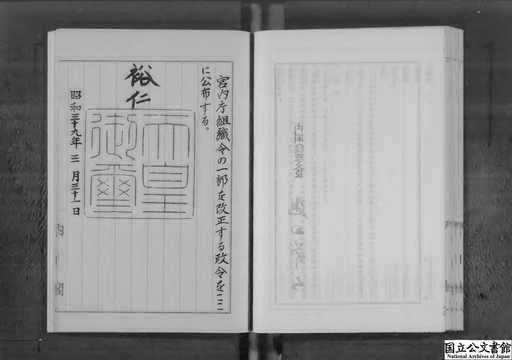 内閣総理大臣 池田勇人
宮内庁組織令の一部を改正する政令をここ
に公布する。
裕仁
天皇
御璽
昭和三十九年三月三十一日
内閣
国立公文書館
National Archives of Japan